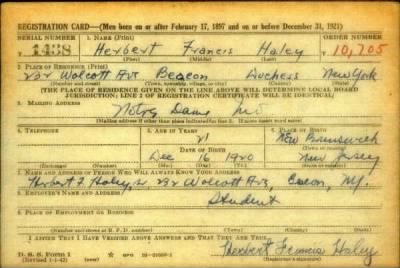 REGISTRATION CARD—(Men born on or after February 17, 1897 and on or before December 31, 1921)
SERIAL NUMBER 1. NAME (Print) ORDER NUMBER
1438 Herbert Francis Haley 10,705
(First) (Middle) (Last)
2. PLACE OF RESIDENCE (Print)
Wolcott Ave Beacon Duchess New York
(Number and street) (Town, township, village, or city) (County) (State)
[THE PLACE OF RESIDENCE GIVEN ON THE LINE ABOVE WILL DETERMINE LOCAL BOARD
JURISDICTION; LINE 2 OF REGISTRATION CERTIFICATE WILL BE IDENTICAL]
3. MAILING ADDRESS
Notre Dame
[Mailing address if other than place indicated on line 2. If same insert word same]
4. TELEPHONE 5. AGE IN YEARS 6. PLACE OF BIRTH
21 New Brunswick
DATE OF BIRTH (Town or county)
Dec 16 1920 New Jersey
(Exchange) (Number) (Mo.) (Day) (Yr.) (State or country)
7. NAME AND ADDRESS OF PERSON WHO WILL ALWAYS KNOW YOUR ADDRESS
Herbert F Haley, Sr Wolcott Ave, Beacon, NY.
8. EMPLOYER'S NAME AND ADDRESS
Student
9. PLACE OF EMPLOYMENT OR BUSINESS
(Number and street or R. F. D. number) (Town) (County) (State)
I AFFIRM THAT I HAVE VERIFIED ABOVE ANSWERS AND THAT THEY ARE TRUE.
D. S. S. Form 1 Herbert Francis Haley
(Revised 1-1-42) (over) (Registrant's signature)